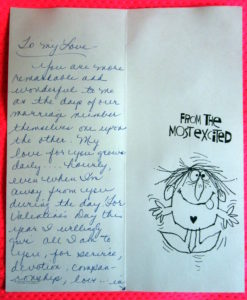 To my Love
You are more
remarkable and
wonderful to me
as the days of our
marriage number
themselves one upon
the other. My
love for you grows
daily.... hourly,
even when I'm
away from you
during the day. For
Valentine's Day this
year I willingly
give all I am to
you, for service,
devotion, compan-
ionship, love... in
FROM THE
MOST EXCITED